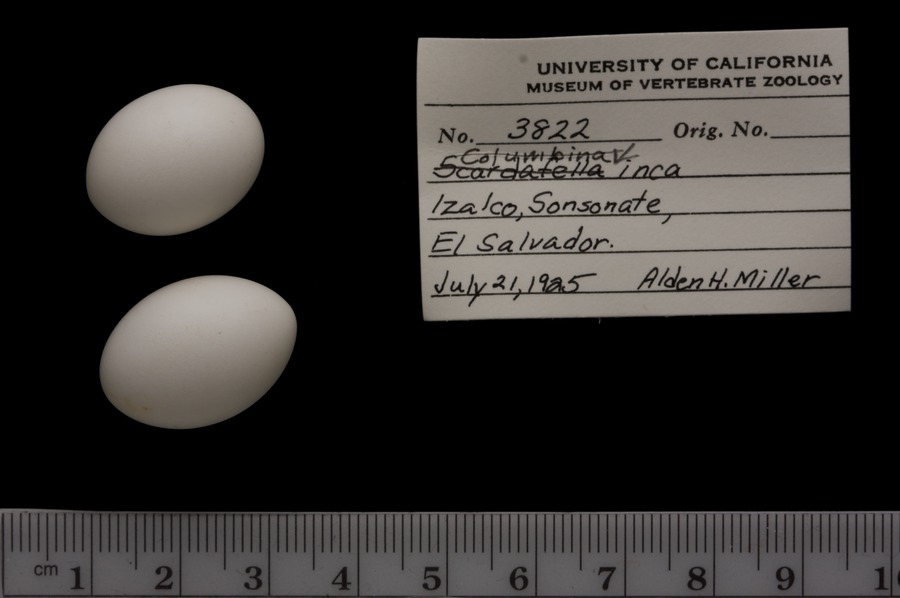 UNIVERSITY OF CALIFORNIA
MUSEUM OF VERTEBRATE ZOOLOGY
No. 3822 Orig. No.
Columbina ✓
Scardafella inca
Izalco, Sonsonate,
El Salvador.
July 21, 1925 Alden H. Miller
cm 1 2 3 4 5 6 7 8 9